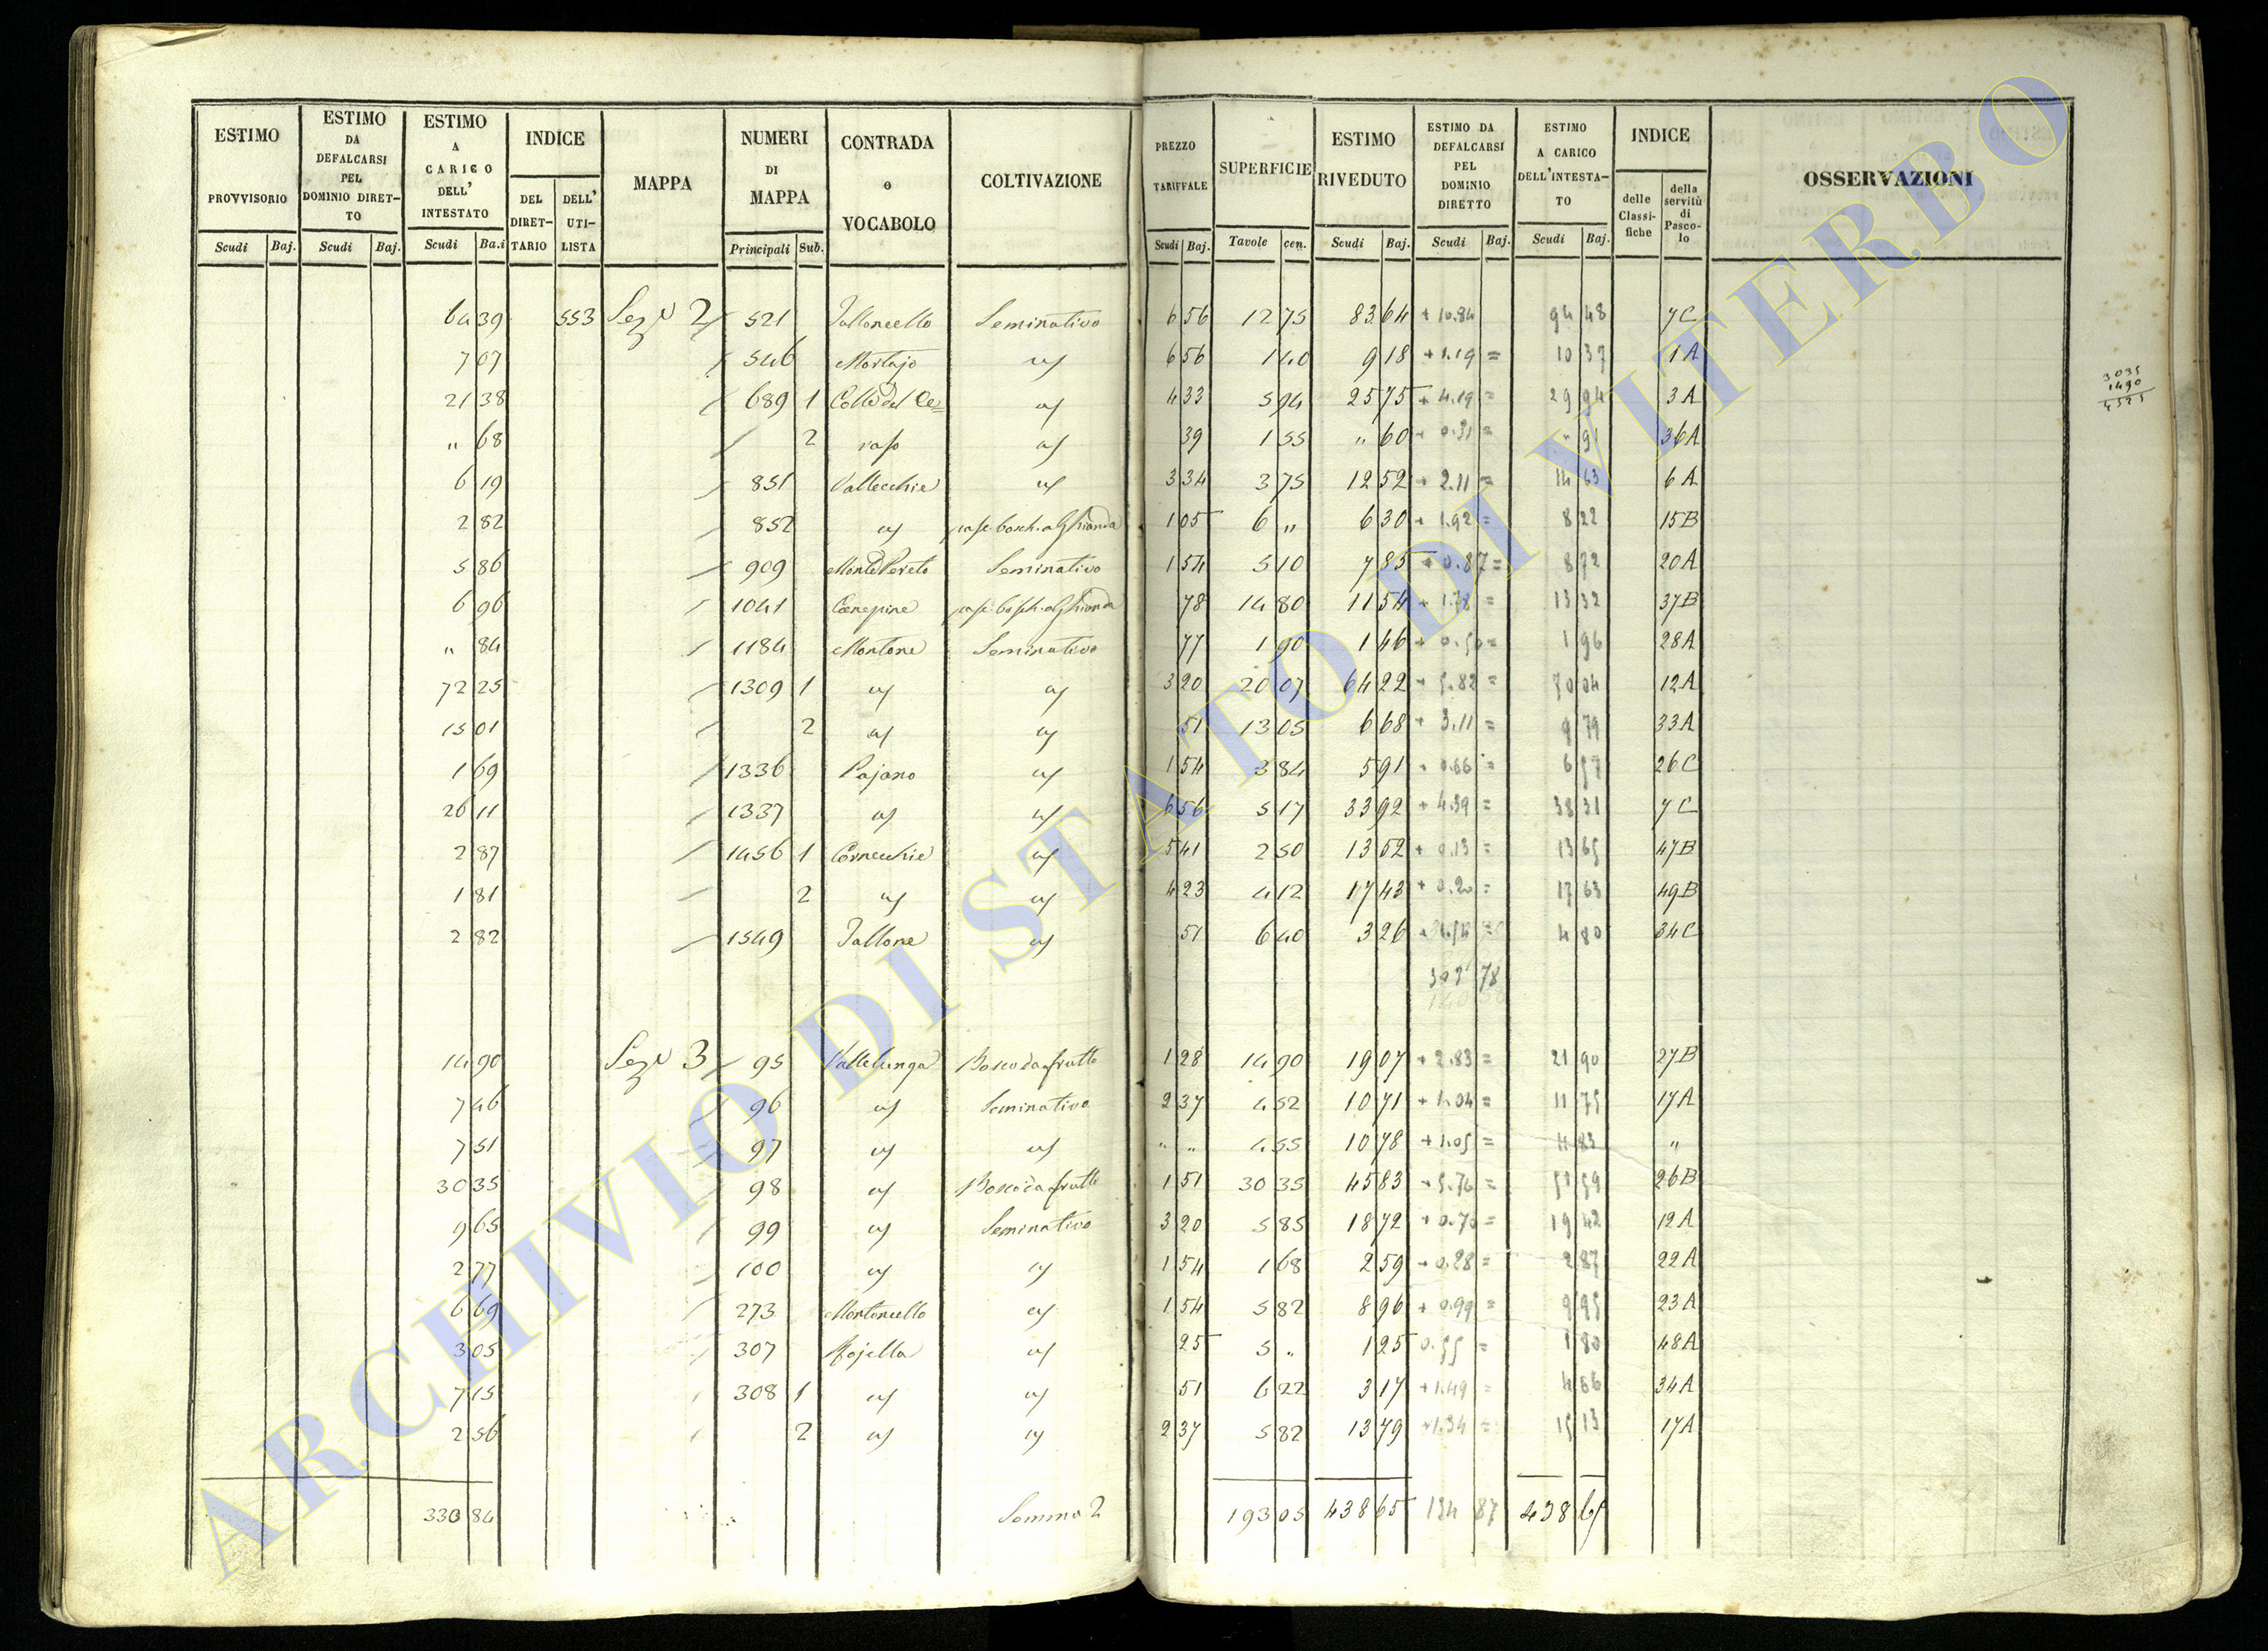 ESTIMO PROVVISORIO Scudi Baj.
ESTIMO DA DEFALCARSI PEL DOMINIO DIRET-TO Scudi Baj.
ESTIMO A CARICO DELL' INTESTATO Scudi Ba.i
INDICE DEL DIRET-TARIO DELL' UTI-LISTA
MAPPA
NUMERI DI MAPPA Principali Sub.
CONTRADA o VOCABOLO
COLTIVAZIONE
PREZZO TARIFFALE Scudi Baj.
SUPERFICIE Tavole cen.
ESTIMO RIVEDUTO Scudi Baj.
ESTIMO DA DEFALCARSI PEL DOMINIO DIRETTO Scudi Baj.
ESTIMO A CARICO DELL'INTESTA-TO Scudi Baj.
INDICE delle Classi-fiche della servitù di Pasco-lo
OSSERVAZIONI
64 39 553 Sez 2 521 Valloncello Seminativo 6 56 12 75 83 64 + 10.84 94 48 7C
7 07 546 Mortajo 6 56 1 40 9 18 + 1.19 = 10 37 1A
21 38 689 1 Colle del Ce= 4 33 5 94 25 75 + 4.19 = 29 94 3A
" 68 2 raso 39 1 55 " 60 + 0.31 = " 91 36A
6 19 851 Vallecchie 3 34 3 75 12 52 + 2.11 = 14 63 6A
2 82 852 1 05 6 " 6 30 + 1.92 = 8 22 15B
5 86 909 Monte Pereto Seminativo 1 54 5 10 7 85 + 0.87 = 8 72 20A
6 96 1041 Canepine 78 14 80 11 54 + 1.78 = 13 32 37B
" 84 1184 Montone Seminativo 77 1 90 1 46 + 0.50 = 1 96 28A
72 25 1309 1 3 20 20 07 64 22 + 5.82 = 70 04 12A
15 01 2 51 13 05 6 68 + 3.11 = 9 79 33A
1 69 1336 Pajano 1 54 3 84 5 91 + 0.66 = 6 57 26C
26 11 1337 6 56 5 17 33 92 + 4.39 = 38 31 7C
2 87 1456 1 Cornecchie 5 41 2 50 13 52 + 0.13 = 13 65 47B
1 81 2 4 23 4 12 17 43 + 0.20 = 17 63 49B
2 82 1549 Vallone 51 6 40 3 26 4 80 34C
303 78
14 90 Sez 3 95 Vallelunga Bosco da frutto 1 28 14 90 19 07 + 2.83 = 21 90 27B
7 46 96 Seminativo 2 37 4 52 10 71 + 1.04 = 11 75 17A
7 51 97 " " 4 55 10 78 + 1.05 = 11 83 "
30 35 98 Bosco da frutto 1 51 30 35 45 83 + 5.76 = 51 59 26B
9 65 99 Seminativo 3 20 5 85 18 72 + 0.70 = 19 42 12A
2 77 100 1 54 1 68 2 59 + 0.28 = 2 87 22A
6 69 273 Montoncello 1 54 5 82 8 96 + 0.99 = 9 95 23A
3 05 307 Mojella 25 5 " 1 25 0.55 = 1 80 48A
7 15 308 1 51 6 22 3 17 + 1.49 = 4 66 34A
2 56 2 2 37 5 82 13 79 + 1.34 = 15 13 17A
330 84 Somma 2 193 05 438 65 134 87 438 65
3035
1490
4525
ARCHIVIO DI STATO DI VITERBO